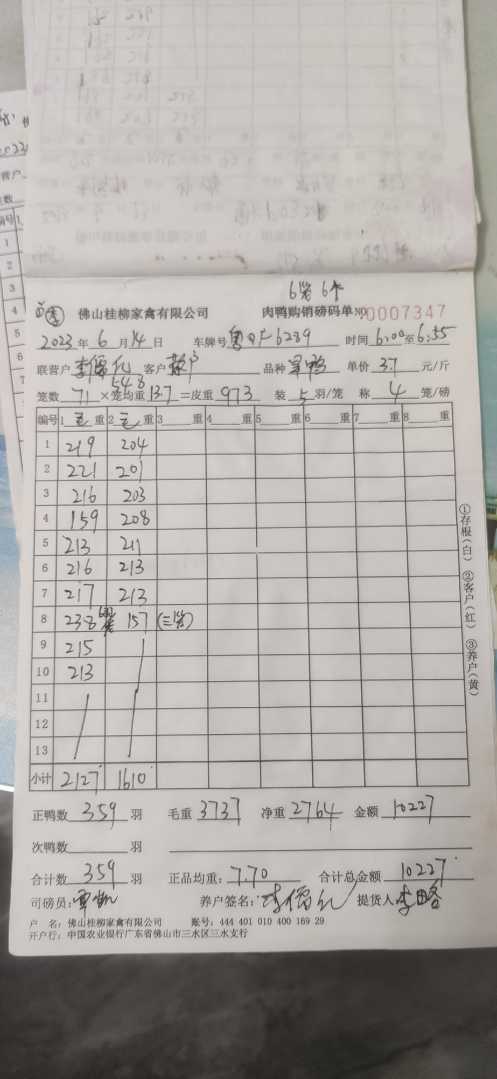 6笼 6个
佛山桂柳家禽有限公司 肉鸭购销磅码单 №0007347
2023年6月14日 车牌号 6289 时间 6:00至6:55
联营户 李儒礼 客户 品种 单价 3.7 元/斤
548
笼数 71 ×笼均重 13.7 =皮重 973 装 5 羽/笼 称 4 笼/磅
编号 1 毛 重 2 毛 重 3 重 4 重 5 重 6 重 7 重 8 重
1 219 204
2 221 201
3 216 203
4 159 208
5 213 211
6 216 213
7 217 213
8 238 157 (三笼)
9 215
10 213
11
12
13
小计 2127 1610
①存根(白) ②客户(红) ③养户(黄)
正鸭数 359 羽 毛重 3737 净重 2764 金额 10227
次鸭数 羽
合计数 359 羽 正品均重: 7.70 合计总金额 10227
司磅员: 养户签名: 李儒礼 提货人
户 名: 佛山桂柳家禽有限公司 账号: 444 401 010 400 169 29
开户行: 中国农业银行广东省佛山市三水区三水支行